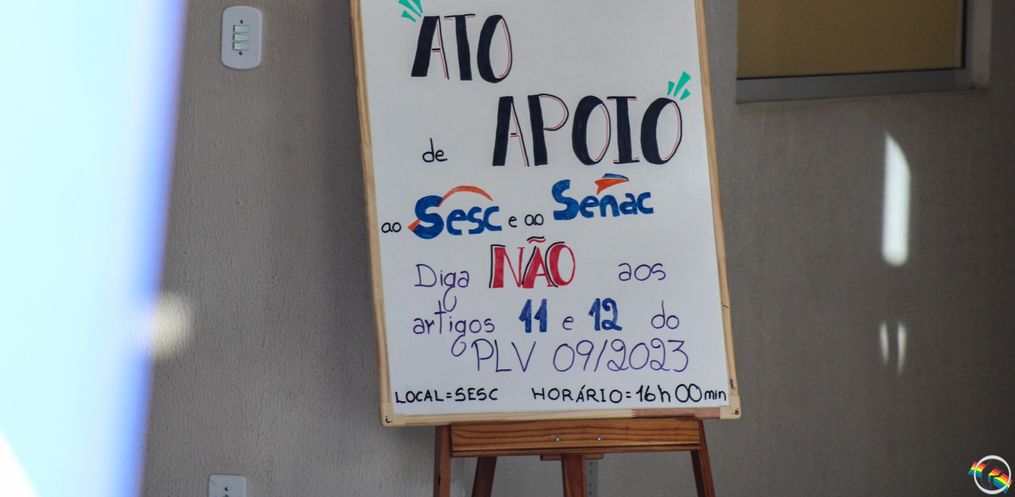 ATO
de APOIO
ao Sesc e ao Senac
Diga NÃO aos
artigos 11 e 12 do
PLV 09/2023
LOCAL=SESC HORÁRIO=16h00min